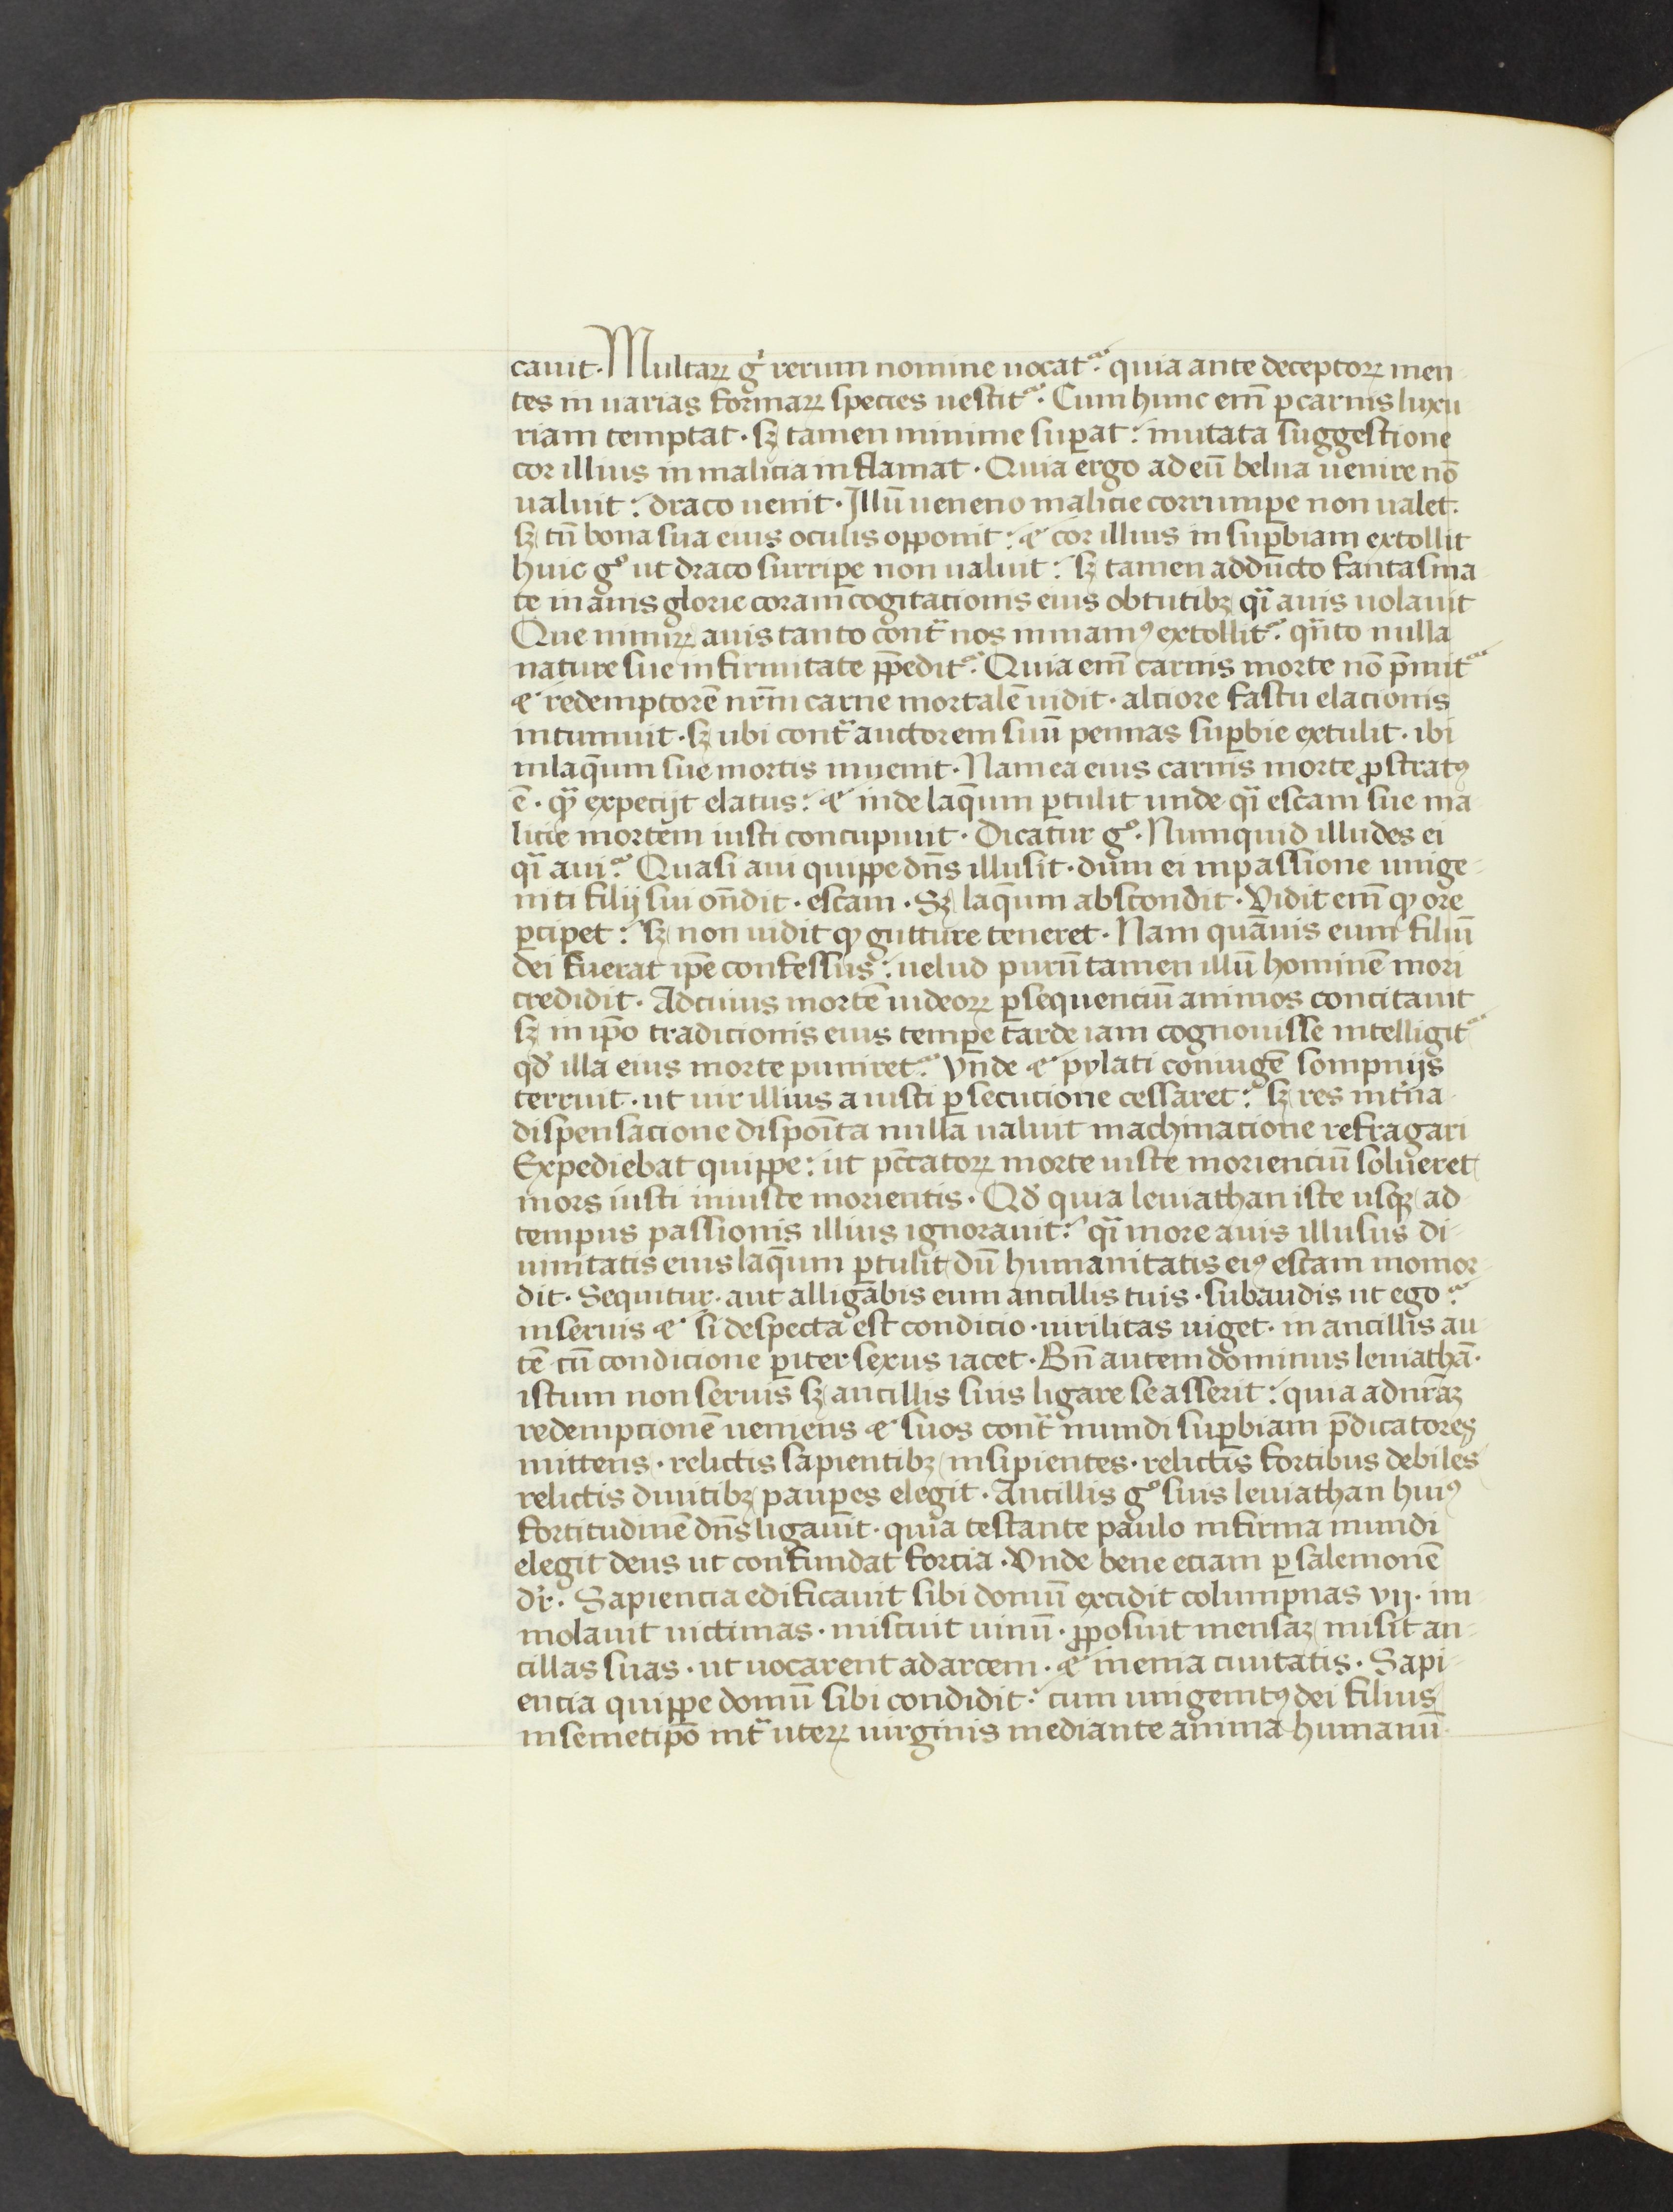 cauit. Multaꝝ gͥ rerum nomine uocatᷣ: quia ante deceptoꝝ men
tes in uarias formaꝝ species uestitᷣ. Cum hunc em̄ ꝑ carnis luxu
riam temptat. sꝫ tamen minime suꝑat: mutata suggestione
cor illius in malicia inflamat. Quia ergo ad eū belua uenire nō
ualuit: draco uenit. Illū ueneno malicie corrumꝑe non ualet.
sꝫ tn̄ bona sua eius oculis opponit: ⁊ cor illius in suꝑbiam extollit
huic gͦ ut draco surriꝑe non ualuit: sꝫ tamen adducto fantasma
te inanis glorie coram cogitacionis eius obtutibꝫ qͣi auis uolauit
Que nimiꝝ auis tanto contͣ nos inmamꝯ extollitᷣ: qn̄to nulla
nature sue infirmitate p̄peditᷣ. Quia em̄ carnis morte nō p̄mitᷣ
⁊ redemptorē nr̄m carne mortalē uidit. alciore fastu elacionis
intumuit. sꝫ ubi contͣ auctorem suū pennas suꝑbie extulit. ibi
inlaq̄um sue mortis inuenit. Nam ea eius carnis morte ꝓstratꝯ
ē. qͣ expecijt elatus: ⁊ inde laq̄um ꝑtulit unde qͣi escam sue ma
licie mortem iusti concupiuit. Dicatur gͦ. Numquid illudes ei
qͣi auiᷣ. Quasi aui quippe dn̄s illusit. dum ei in passione unige-
niti filij sui on̄dit. escam. Sꝫ laq̄um abscondit. Vidit em̄ ꝙ ore
ꝑcipet: sꝫ non uidit ꝙ gutture teneret. Nam quāuis eum filiū
dei fuerat ip̄e confessus: uelud purū tamen illū hominē mori
credidit. Ad cuius mortē iudeoꝝ ꝑsequenciū animos concitauit
sꝫ in ip̄o tradicionis eius temꝑe tarde iam cognouisse intelligitᷣ
qd̄ illa eius morte puniretᷣ. Vnde ⁊ pylati coniugē sompnijs
terruit. ut uir illius a iusti ꝑsecucione cessaret: sꝫ res int̉na
dispensacione dispoīta nulla ualuit machinacione refragari
Expediebat quippe: ut pctͨatoꝝ morte iuste moriencium solueret
mors iusti iniuste morientis. Qd̄ quia leuiathan iste usqꝫ ad
tempus passionis illius ignorauit: qͣi more auis illusus di-
uinitatis eius laq̄um ꝑtulit dū humanitatis eiꝯ escam momor
dit. Sequitur. aut alligabis eum ancillis tuis. subaudis ut egoᷣ
in seruis ⁊ si despecta est condicio. uirilitas uiget. in ancillis au
tē cū condicione ꝑiter sexus iacet. Bn̄ autem dominus leuiathā.
istum non seruis sꝫ ancillis suis ligare se asserit: quia ad nr̄aꝫ
redempcionē ueniens ⁊ suos contͣ mundi suꝑbiam p̄dicatores
mittens. relictis sapientibꝫ insipientes. relictis fortibus debiles
relictis diuitibꝫ pauꝑes elegit. Ancillis gͦ suis leuiathan huiꝯ
fortitudinē dn̄s ligauit. quia testante paulo infirma mundi
elegit deus ut confundat forcia. Vnde bene eciam ꝑ salemonē
dr̄. Sapiencia edificauit sibi domū excidit columpnas vij. im
molauit uictimas. miscuit uinū. ꝓposuit mensaꝫ misit an-
cillas suas. ut uocarent ad arcem. ⁊ menia ciuitatis. Sapi-
encia quippe domū sibi condidit: cum unigenitꝯ dei filius
in semetip̄o intͣ uteꝝ uirginis mediante anima humanū